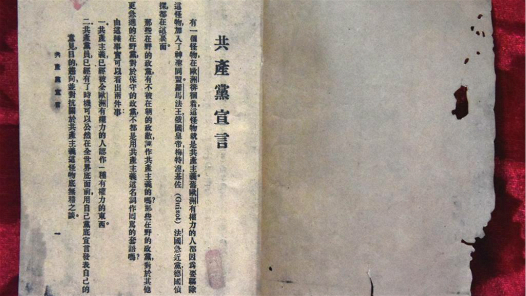 共產黨宣言
有一個怪物，在歐洲徘徊着，這怪物就是共產主義。舊歐洲有權力的人都因爲要驅除
這怪物，加入了神聖同盟。羅馬法王，俄國皇帝，梅特涅，基佐（Guizot），法國急進黨，德國偵
探，都在這裏面。
那些在野的政黨，有不被在朝的政敵，誣作共產主義的嗎？那些在野的政黨，對於其他
更急進的在野黨，對於保守的政黨，不都是用共產主義這名詞作回罵的套語嗎？
由這種事實可以看出兩件事：
一、共產主義已經被全歐洲有權力的人都作一種有權力的東西。
二、共產黨員，已經有了時機可以公然在全世界底面前，用自己黨底宣言發表自己的
意見，目的，趨向，並對抗關於共產主義這怪物底無稽之談。
共產黨宣言
一